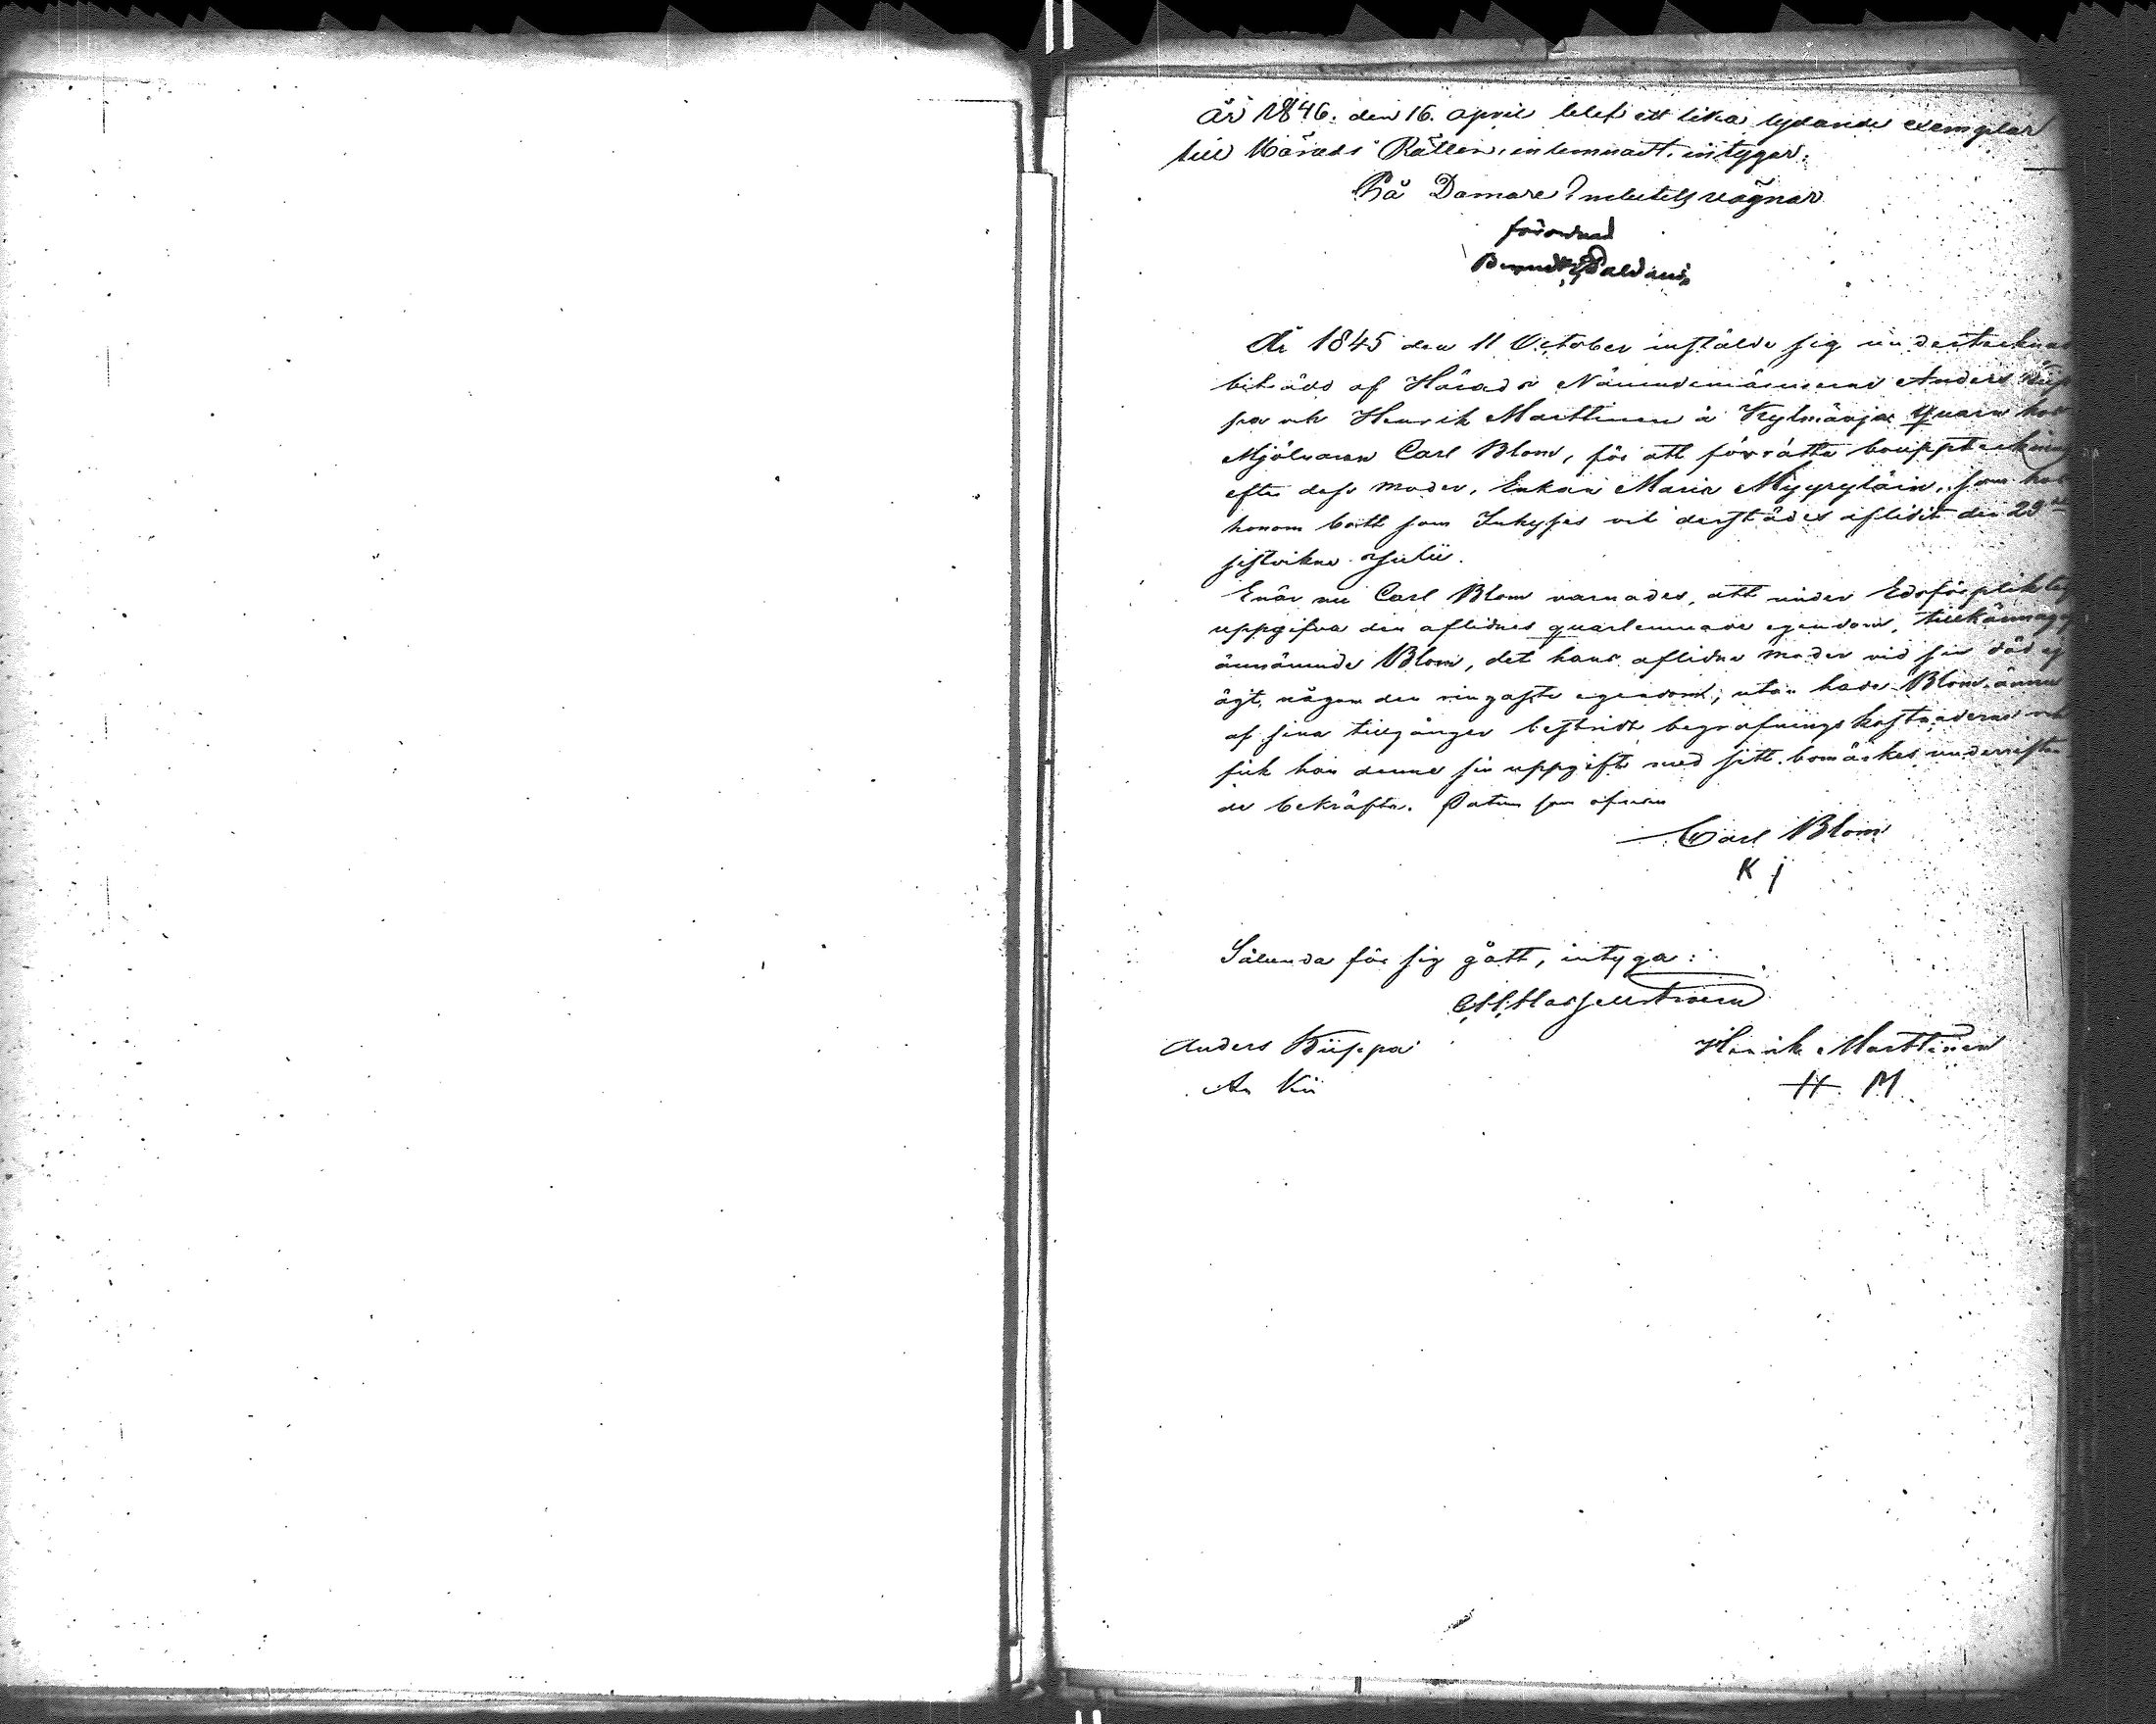 År 1846. den 16. April blef ett lika lydande exemplar
till Härads Rätten inlemnadt, intygar:
På Domare Embetets vägnar
förordnad
År 1845 den 11 October instälde sig undertecknad
biträdd af Härads Nämndemännerne Anders Kiis
pa och Henrik Marttinen å Kylmäoja Quarn hos
Mjölnaren Carl Blom, för att förrätta bouppteckning
efter dess moder, Enkan Maria Myyryläin, som hos
honom bott som Inhyses och derstädes aflidit den 29de
sistvikne Julii.
Enär nu Carl Blom varnades, att under Edsförpliktelse
uppgifva den aflidnes quarlemnade egendom, tillkännagaf
ämnämnde Blom, det hans aflidne moder vid sin död ej
ägt någon den ringaste egendom, utan hade Blom ännu
af sina tillgångar bestridt begrafnings kostnaderne och
fick han denne sin uppgift med sitt bomärkes underrittan
de bekräfta. Datum som ofvan
Carl Blom
K j
Sålunda för sig gått, intyga:
Anders Kiispa Henrik Marttinen
An Kii H M